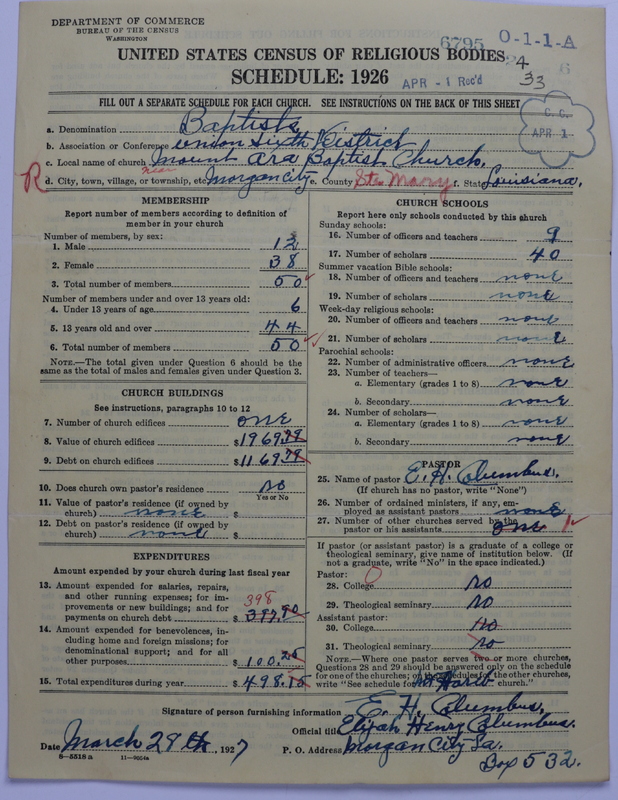 DEPARTMENT OF COMMERCE
BUREAU OF THE CENSUS
WASHINGTON
6795 O-1-1-A
UNITED STATES CENSUS OF RELIGIOUS BODIES
SCHEDULE: 1926
APR - 1 Rec'd
4
33
FILL OUT A SEPARATE SCHEDULE FOR EACH CHURCH. SEE INSTRUCTIONS ON THE BACK OF THIS SHEET
C. C.
APR 1
a. Denomination Baptists
b. Association or Conference Sixth District
c. Local name of church Mount Ara Baptist Church.
R d. City, town, village, or township, etc. near Morgan City e. County Ste. Mary f. State Louisiana.
MEMBERSHIP
Report number of members according to definition of member in your church
Number of members, by sex:
1. Male 12
2. Female 38
3. Total number of members 50
Number of members under and over 13 years old:
4. Under 13 years of age 6
5. 13 years old and over 44
6. Total number of members 50
NOTE.—The total given under Question 6 should be the
same as the total of males and females given under Question 3.
CHURCH BUILDINGS
See instructions, paragraphs 10 to 12
7. Number of church edifices one
8. Value of church edifices $1969.39
9. Debt on church edifices $1169.39
10. Does church own pastor's residence no
Yes or No
11. Value of pastor's residence (if owned by
church) none $
12. Debt on pastor's residence (if owned by
church) none $
EXPENDITURES
Amount expended by your church during last fiscal year
13. Amount expended for salaries, repairs,
and other running expenses; for im-
provements or new buildings; and for
payments on church debt $ 397.90
398
14. Amount expended for benevolences, in-
cluding home and foreign missions; for
denominational support; and for all
other purposes $ 100.25
15. Total expenditures during year $ 498.15
CHURCH SCHOOLS
Report here only schools conducted by this church
Sunday schools:
16. Number of officers and teachers 9
17. Number of scholars 40
Summer vacation Bible schools:
18. Number of officers and teachers none
19. Number of scholars none
Week-day religious schools:
20. Number of officers and teachers none
21. Number of scholars none
Parochial schools:
22. Number of administrative officers none
23. Number of teachers—
a. Elementary (grades 1 to 8) none
b. Secondary none
24. Number of scholars—
a. Elementary (grades 1 to 8) none
b. Secondary none
PASTOR
25. Name of pastor E. H. Columbus.
(If church has no pastor, write "None")
26. Number of ordained ministers, if any, em-
ployed as assistant pastors none
27. Number of other churches served by the
pastor or his assistants one 1
If pastor (or assistant pastor) is a graduate of a college or
theological seminary, give name of institution below. (If
not a graduate, write "No" in the space indicated.)
Pastor:
28. College no
29. Theological seminary no
Assistant pastor:
30. College no
31. Theological seminary no
NOTE.—Where one pastor serves two or more churches,
Questions 28 and 29 should be answered only on the schedule
for one of the churches; on the schedules for the other churches,
write "See schedule for church."
Signature of person furnishing information E. H. Columbus.
Official title Elijah Henry Columbus.
Date March 29th, 1927 P. O. Address Morgan City La.
Box 532.
8—5518 a